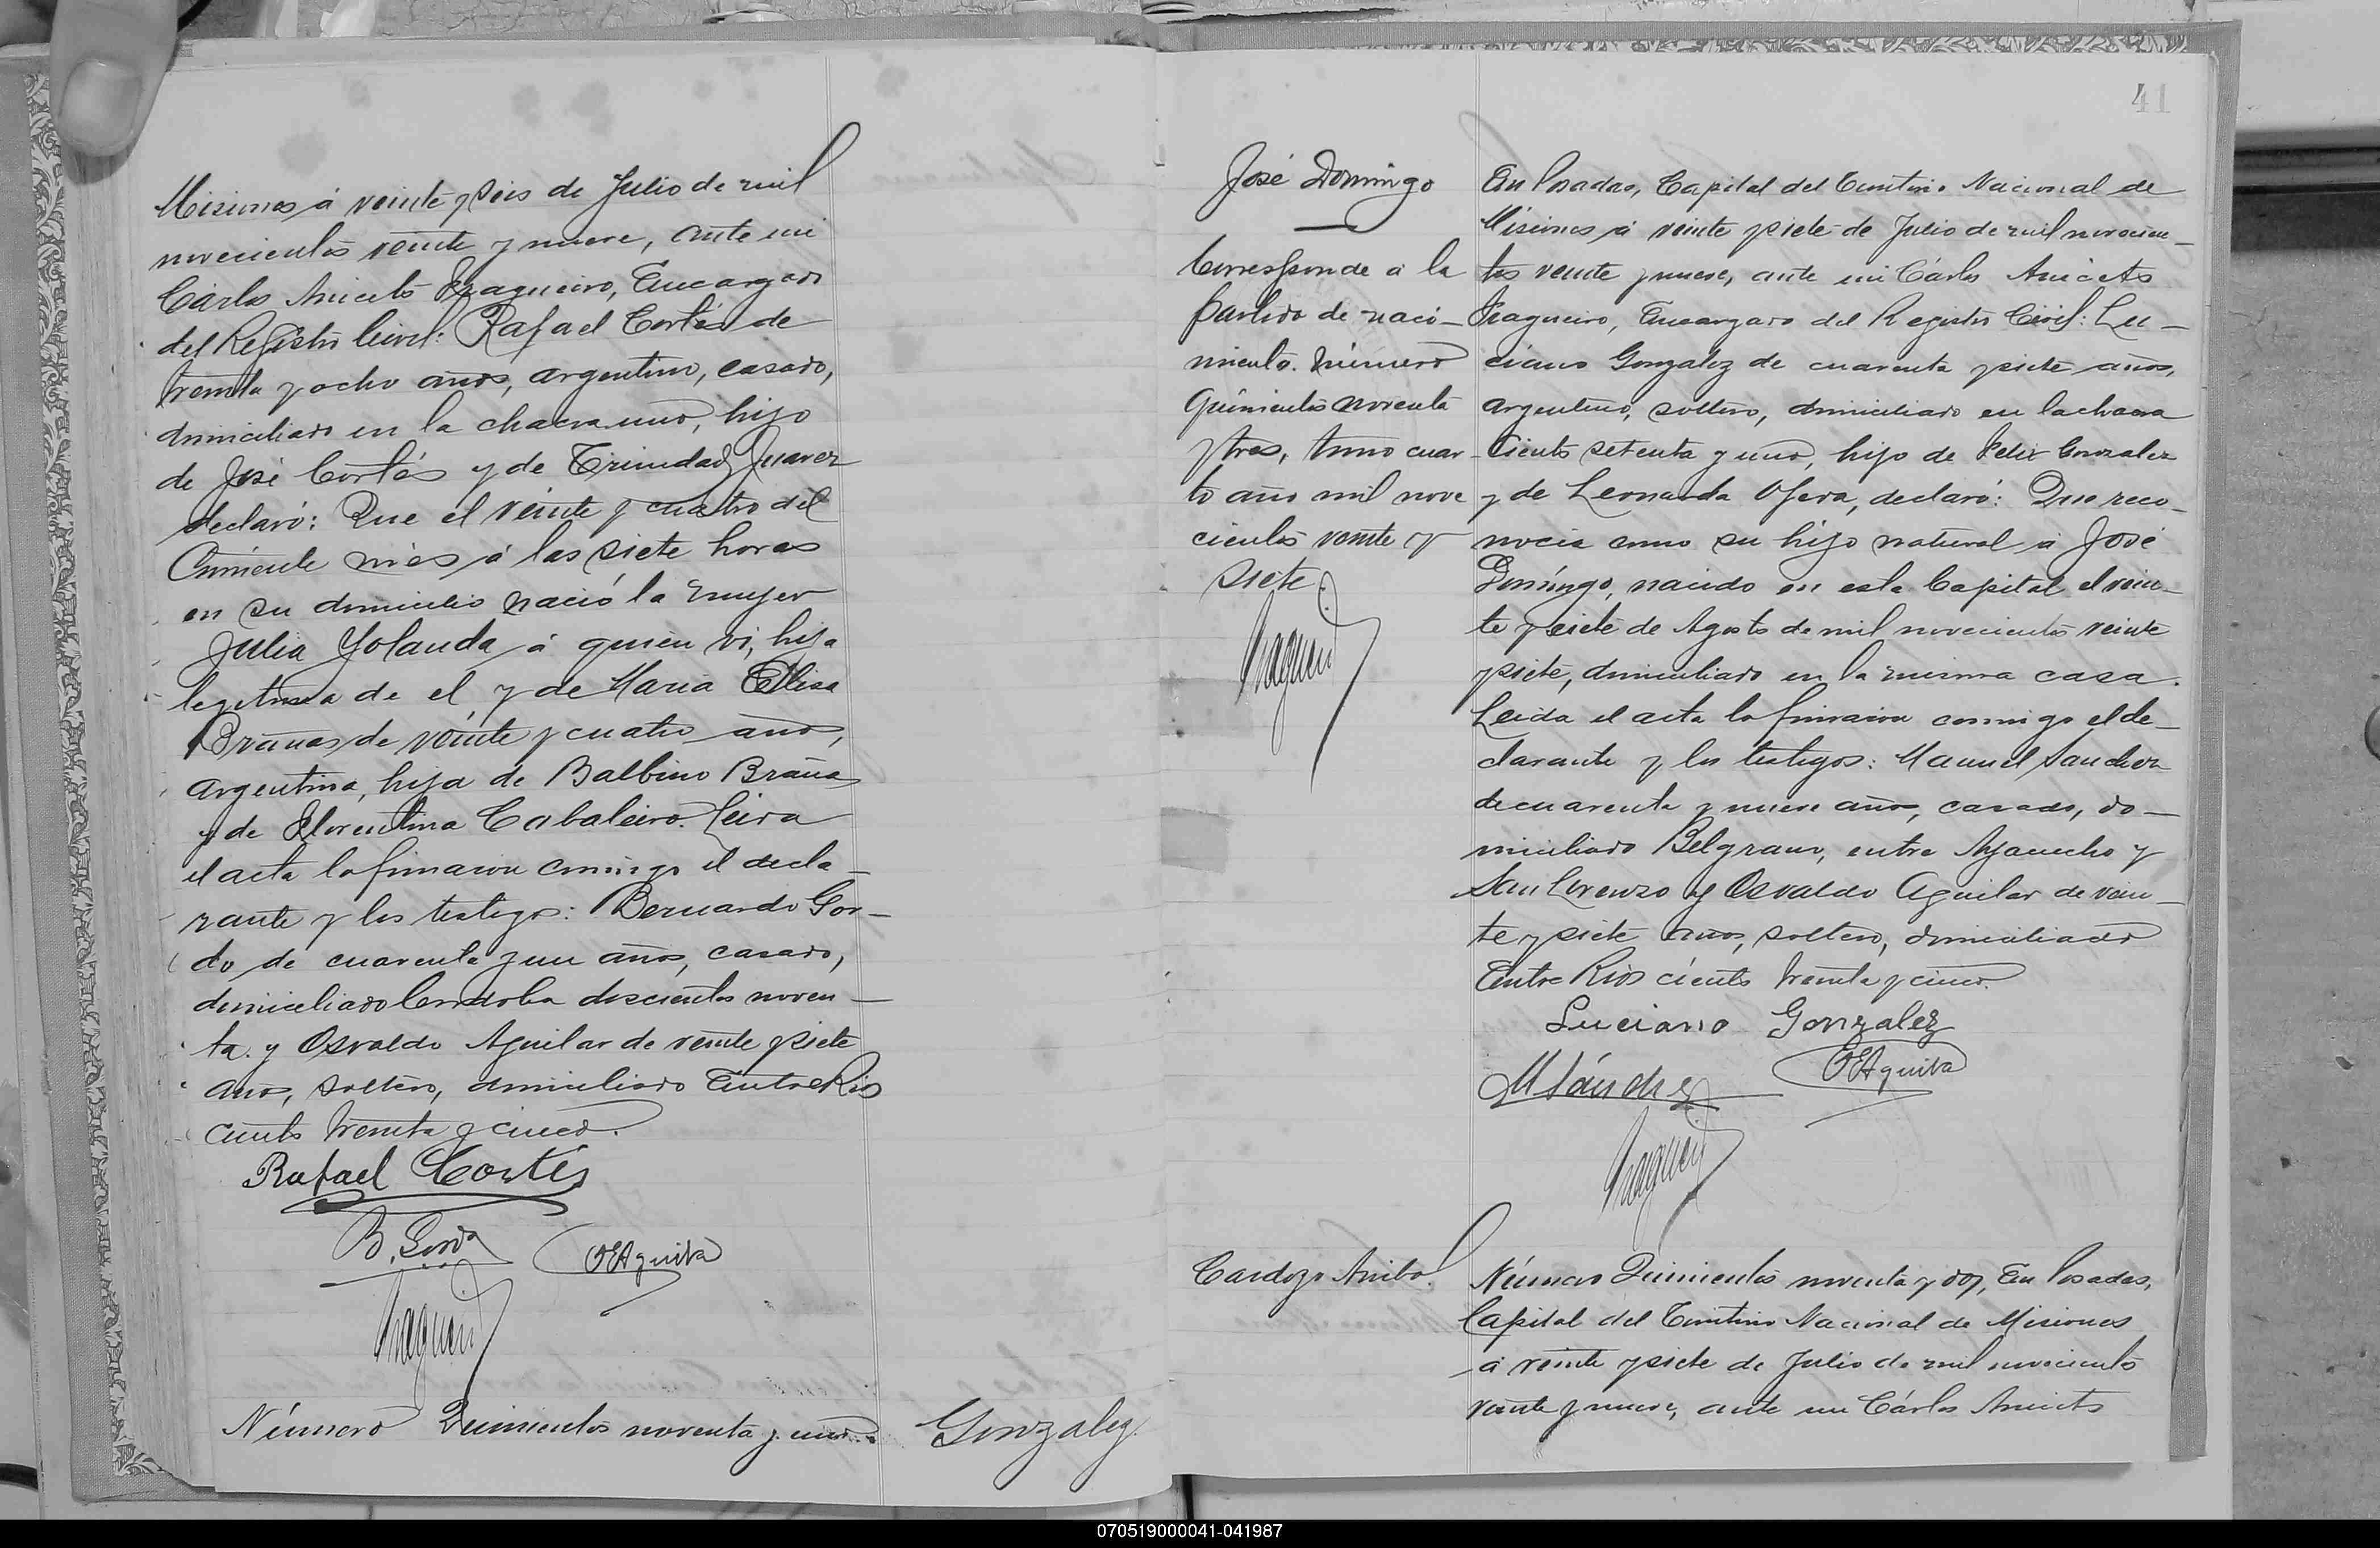 Misiones á veinte y seis de Julio de mil
novecientos veinte y nueve, ante mi
Cárlos Aniceto Fragueiro, Encargado
del Registro Civil: Rafael Cortés de
treinta y ocho años, argentino, casado,
domiciliado en la chacra uno, hijo
de José Cortés y de Trinidad Juarez
declaró: Que el veinte y cuatro del
corriente mes á las siete horas
en su domicilio nació la mujer
Julia Yolanda á quien vi, hija
legitima de el y de Maria Elisa
Brañas de veinte y cuatro años,
argentina, hija de Balbino Brañas
y de Florentina Cabaleiro. Leida
el acta la firmaron conmigo el decla-
rante y los testigos: Bernardo Gor-
do de cuarenta y un años, casado,
domiciliado Cordoba doscientos noven-
ta y Osvaldo Aguilar de veinte y siete
años, soltero, domiciliado Entre Rios
ciento treinta y cinco.
Rafael Cortés
B. Gordo
Número Quinientos noventa y uno.
Gonzalez
41
José Domingo
Corresponde á la
partida de naci-
miento número
quinientos noventa
y tres, tomo cuar-
to año mil nove
cientos veinte y
siete
En Posadas, Capital del Territorio Nacional de
Misiones á veinte y siete de Julio de mil novecien-
tos veinte y nueve, ante mi Cárlos Aniceto
Fragueiro, Encargado del Registro Civil: Lu-
ciano Gonzalez de cuarenta y siete años,
argentino, soltero, domiciliado en la chacra
ciento setenta y uno, hijo de Felix Gonzalez
y de Leonarda Ojeda, declaró: Que reco-
nocia como su hijo natural á José
Domingo, nacido en esta Capital el vein-
te y siete de Agosto de mil novecientos veinte
y siete, domiciliado en la misma casa.
Leida el acta la firmaron conmigo el de-
clarante y los testigos: Manuel Sanchez
de cuarenta y nueve años, casado, do-
miciliado Belgrano, entre Ayacucho y
San Lorenzo y Osvaldo Aguilar de vein-
te y siete años, soltero, domiciliado
Entre Rios ciento treinta y cinco.
Luciano Gonzalez
M Sánchez
Cardozo Anibal
Número Quinientos noventa y dos, En Posadas,
Capital del Territorio Nacional de Misiones
á veinte y siete de Julio de mil novecientos
veinte y nueve, ante mi Cárlos Aniceto
070519000041-041987